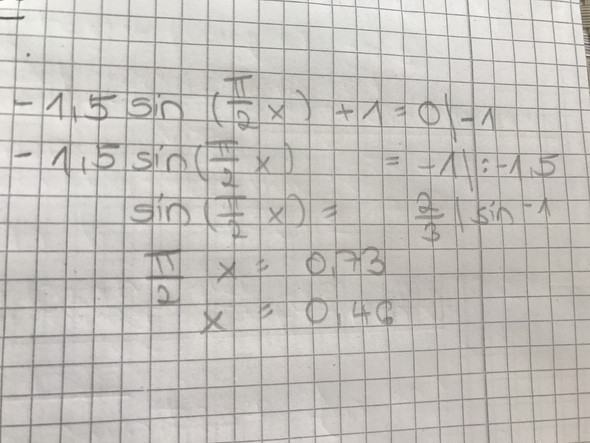 -1,5 sin (π/2 x) +1 = 0 | -1
-1,5 sin (π/2 x) = -1 | : -1,5
sin (π/2 x) = 2/3 | sin⁻¹
π/2 x = 0,73
x = 0,46